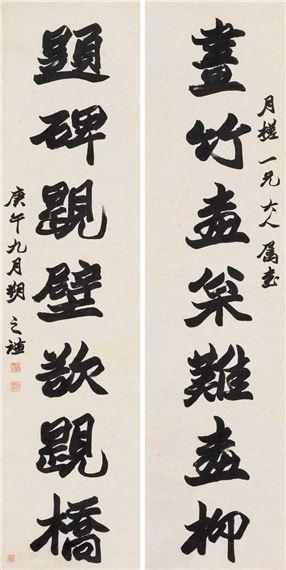 月槎一兄大人屬書
畫竹畫枀難畫柳
題碑題壁欲題橋
庚午九月朔之謙